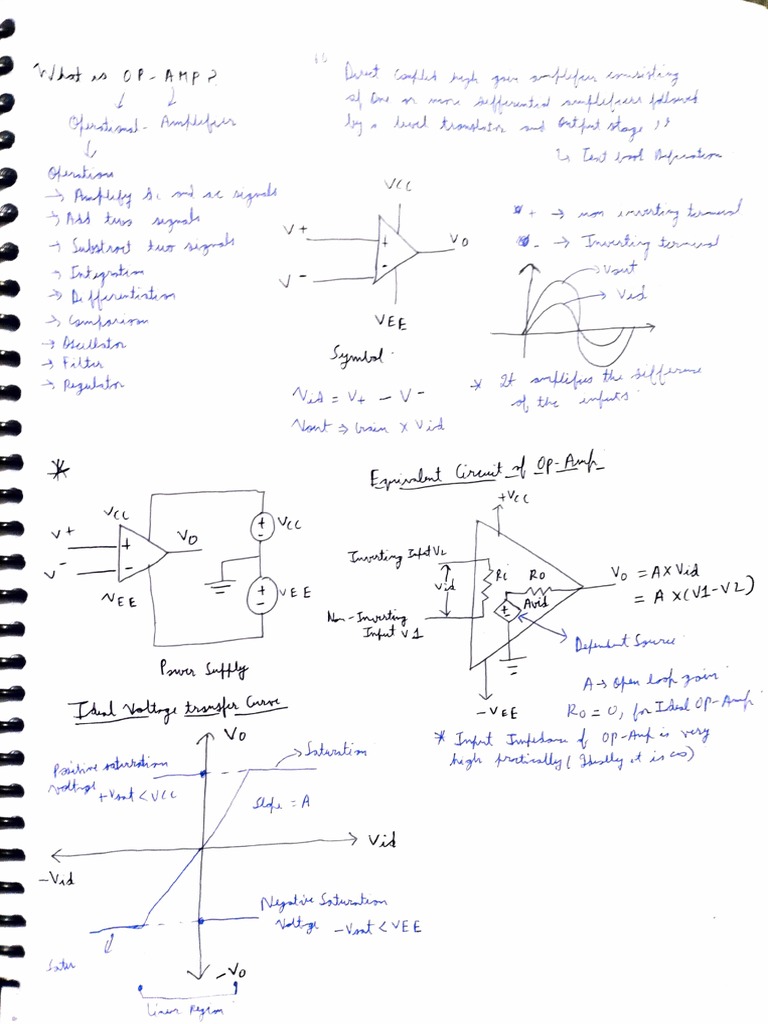 What is OP-AMP?
Operational- Amplifier
Operation
→ Amplify dc and ac signals
→ Add two signals
→ Substract two signals
→ Integration
→ Differentiation
→ Comparison
→ Oscillator
→ Filter
→ Regulator
" Direct coupled high gain amplifier consisting
of one or more differential amplifiers followed
by a level translator and output stage "
↳ Text book Defination
VCC
V+
+
V-
-
VO
VEE
Symbol
* + → non inverting terminal
* - → Inverting terminal
Vout
Vid
Vid = V+ - V-
Vout ⇒ Gain × Vid
* It amplifies the difference
of the inputs
*
VCC
V+
+
V-
-
VO
VEE
+
-
VCC
+
-
VEE
Power Supply
Equivalent Circuit of OP-Amp
+VCC
Inverting Input V2
Vid
Ri
Ro
Non-Inverting
Input V1
Avid
±
VO = A×Vid
= A×(V1-V2)
Dependent Source
-VEE
A → Open loop gain
RO = 0, for Ideal OP-Amp
* Input Impedance of OP-Amp is very
high pratically (Ideally it is ∞)
Ideal Voltage transfer Curve
VO
Positive saturation
voltage +Vsat < VCC
Saturation
Slope = A
Vid
-Vid
Negative Saturation
Voltage -Vsat < VEE
Satur
-VO
Linear Region